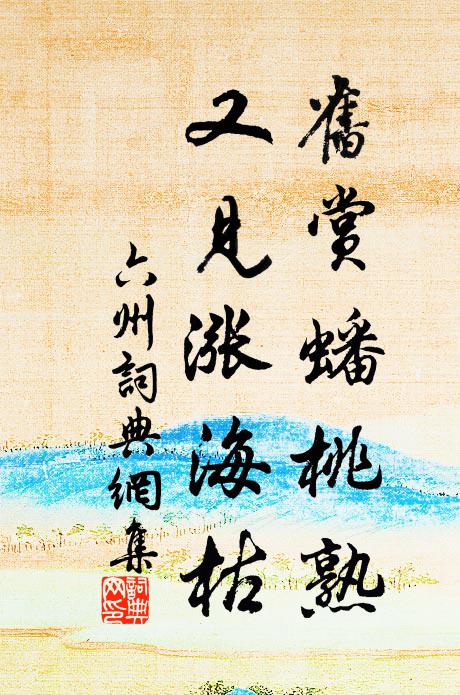 舊賞蟠桃熟
又見漲海枯
六州詞典網集
詞典網印